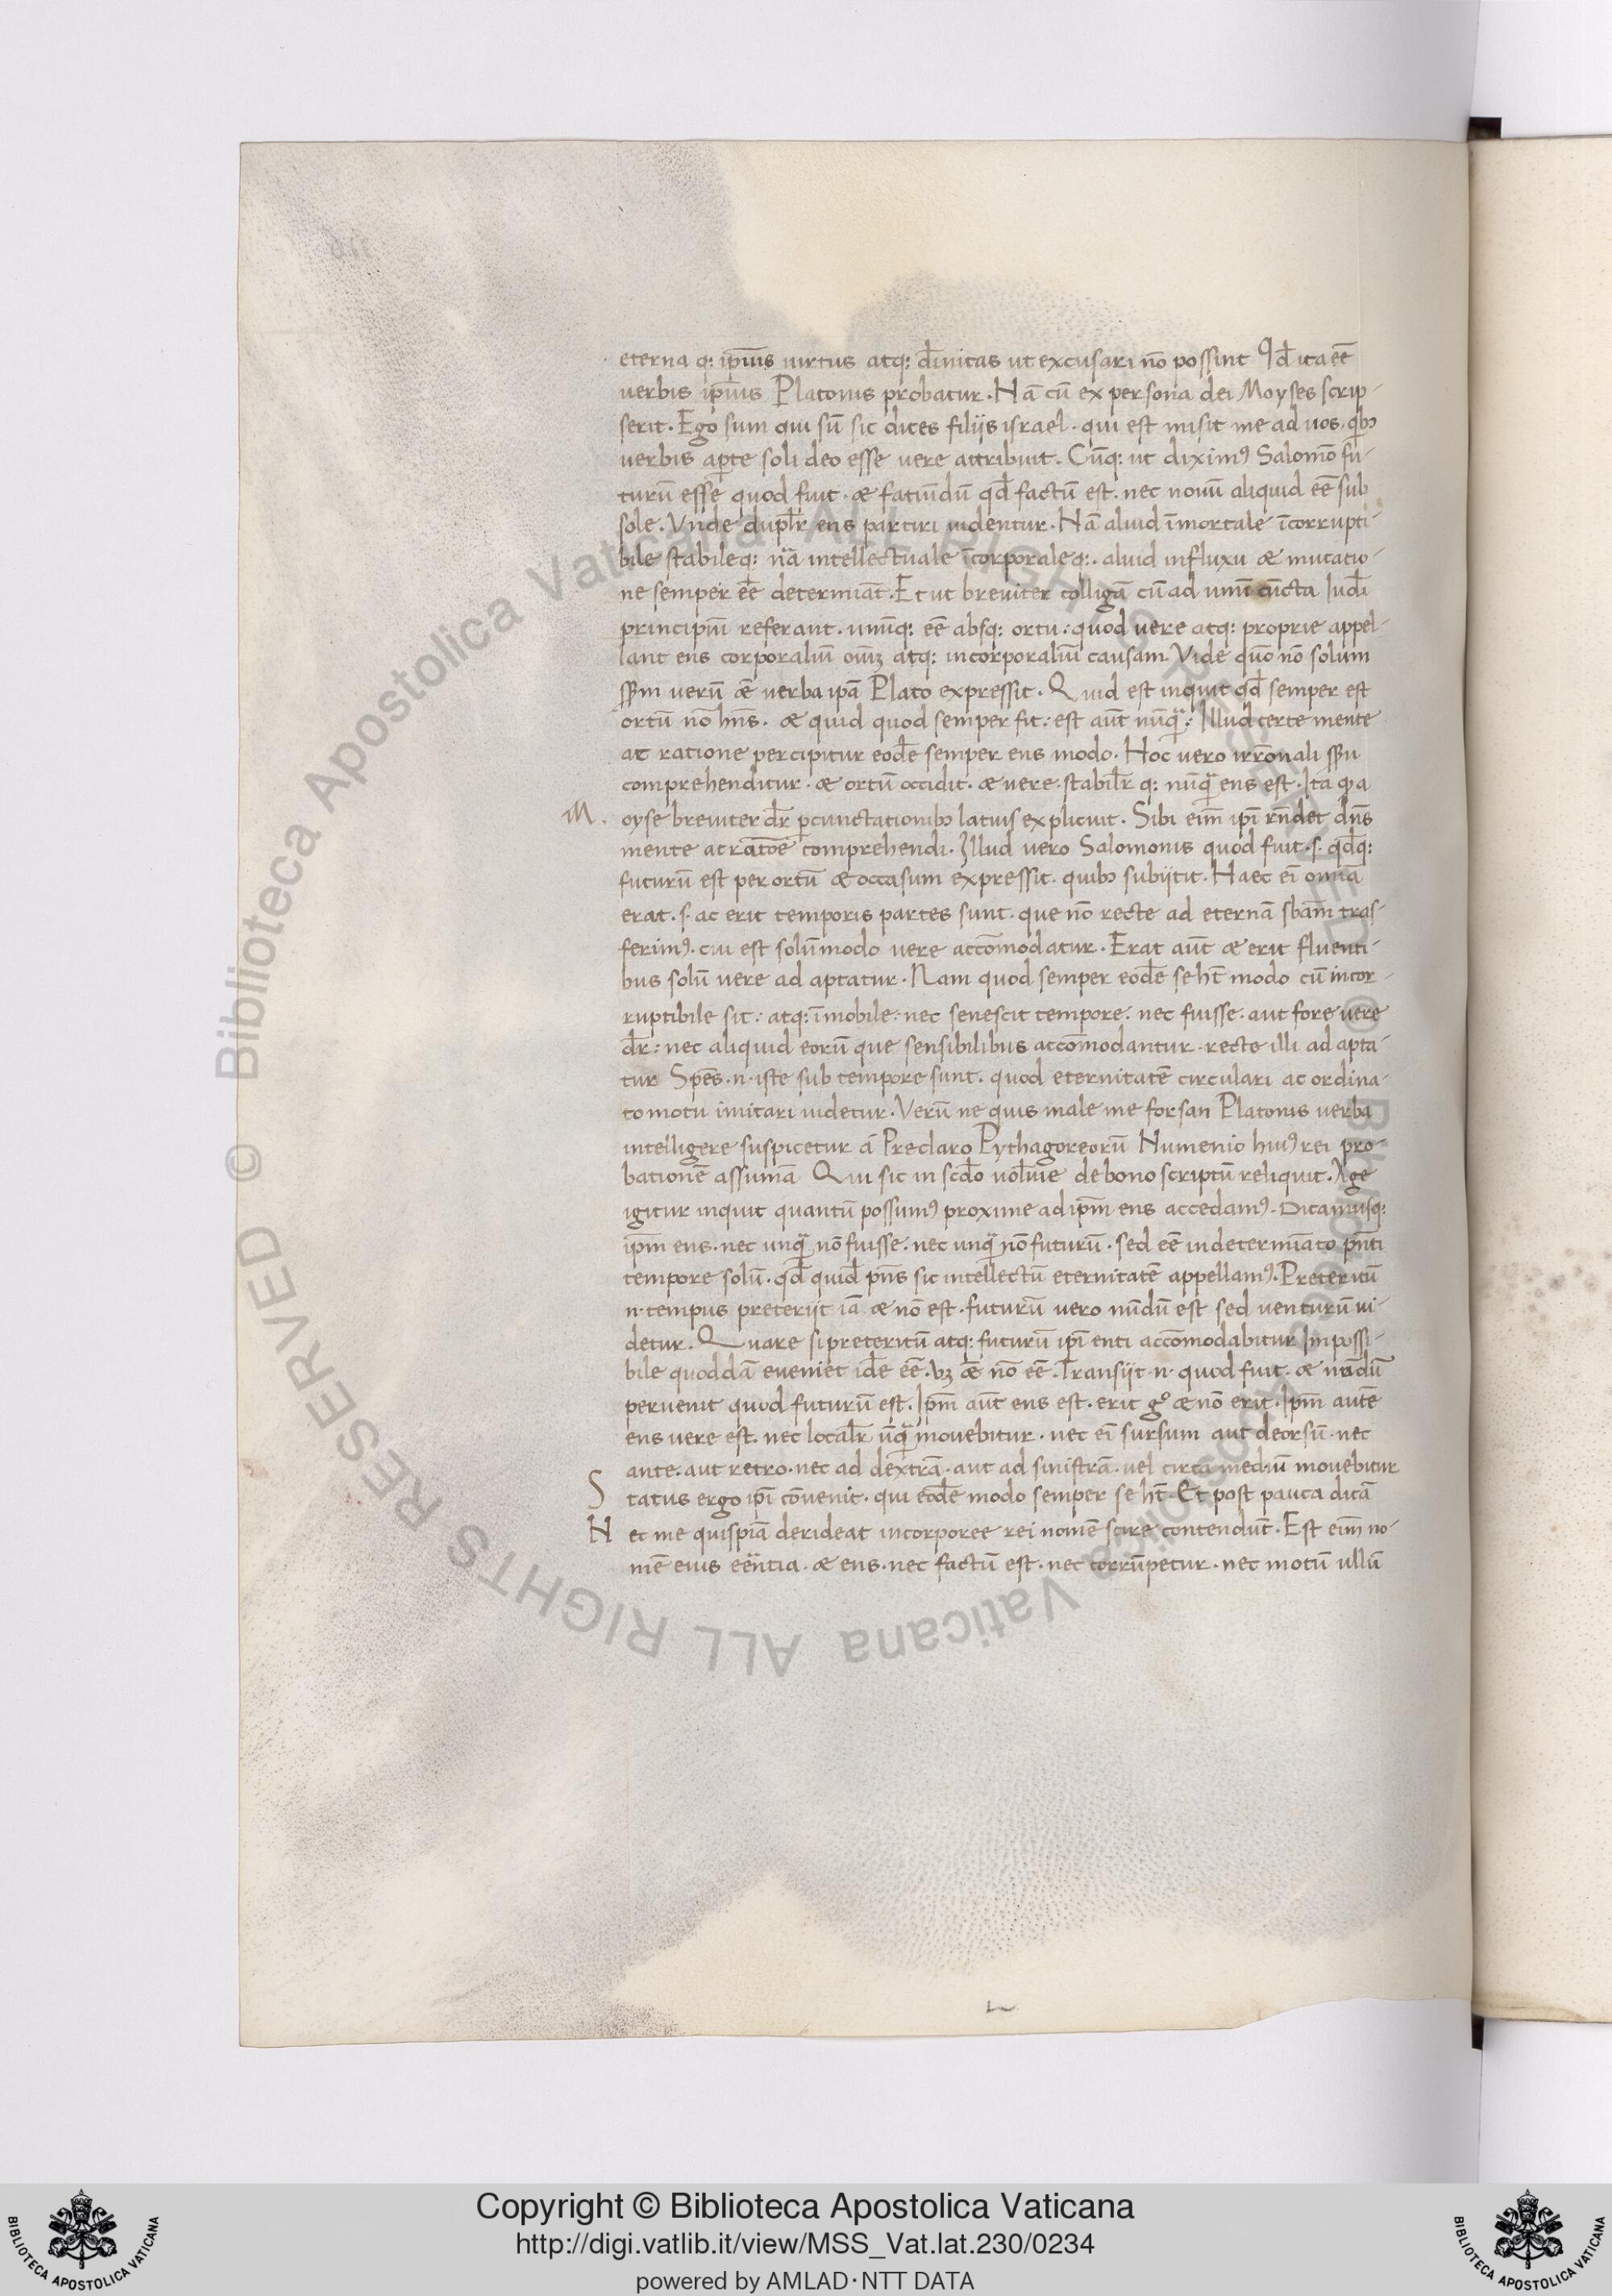 eterna q: ip̄ius uirtus atq: diuinitas ut excusari nō possint Qd̄ ita eē
uerbis ip̄ius Platonis probatur. Nā cū ex persona dei Moyses scrip-
serit. Ego sum qui sū sic dices filijs israel. qui est misit me ad uos. qbꝰ
uerbis aꝑte soli deo esse uere attribuit. Cūq: ut diximꝰ Salomō fu-
turū esse quod fuit. æ faciūdū qd̄ factū est. nec nouū aliquid eē sub
sole. Vnde dupl̄r ens partiri uidentur. Nā aliud īmortale īcorrupti-
bile stabileq: nā intellectuale īcorporaleq:. aliud influxu æ mutatio-
ne semper eē determiāt. Et ut breuiter colligā cū ad unū cūcta Iudei
principiū referant. unūq: eē absq: ortu: quod uere atq: proprie appel-
lant ens corporaliū oīuꝫ atq: incorporaliū causam. Vide quō nō solum
sn̄m uerū æ uerba ipā Plato expressit. Quid est inquit qd̄ semper est
ortū nō hn̄s. æ quid quod semper fit: est aūt nūq̄: Illud certe mente
ac ratione percipitur eodē semper ens modo. Hoc uero irrōnali sn̄u
comprehenditur. æ ortū occidit. æ uere. stabil̄r q: nūq̄ ens est. Ita qꝫ a
M. oyse breuiter dr̄ ꝑcunctationibꝰ latius explicuit. Sibi eīm ipī rn̄det dn̄s
mente ac ratōe comprehendi. Illud uero Salomonis quod fuit. s. qd̄q:
futurū est per ortū æ occasum expressit. quibꝰ subijcit. Haec eī omīa
erat. s. ac erit temporis partes sunt. que nō recte ad eternā sbām tras-
ferimꝰ. cui est solūmodo uere accōmodatur. Erat aūt æ erit fluenti-
bus solū uere ad aptatur. Nam quod semper eodē se ht̄ modo cū incor-
ruptibile sit: atq: īmobile: nec senescit tempore: nec fuisse. aut fore uere
dr̄: nec aliquid eorū que sensibilibus accōmodantur. recte illi ad apta-
tur Spēs. n. iste sub tempore sunt. quod eternitatē circulari ac ordina-
to motu imitari uidetur. Verū ne quis male me forsan Platonis uerba
intelligere suspicetur á Preclaro Pythagoreorū Numenio huiꝰ rei pro-
bationē assumā Qui sic in scdo uolūīe de bono scriptū reliquit. Age
igitur inquit quantū possumꝰ proxime ad ipm̄ ens accedamꝰ. Dicamusq:
ipm̄ ens. nec unq̄ nō fuisse. nec unq̄ nō futurū. sed eē in determīato pn̄ti
tempore solū. qd̄ quid̄ pn̄s sic intellectū eternitatē appellamꝰ. Preteritū
n. tempus preterijt iā æ nō est. futurū uero nūdū est sed uenturū ui-
detur. Quare si preteritū atq: futurū ipī enti accōmodabitur Impossi-
bile quoddā eueniet idē eē. uꝫ æ nō eē. Transijt. n. quod fuit. æ nōdū
peruenit quod futurū est. Ipm̄ aūt ens est. erit gͦ æ nō erit. Ipm̄ autē
ens uere est. nec local̄r ūq̄ mouebitur. nec eī sursum aut deorsū. nec
ante. aut retro. nec ad dextrā. aut ad sinistrā. uel circa mediū mouebitur
S tatus ergo ipī cōuenit. qui eodē modo semper se ht̄. Et post pauca dicā
N ec me quispiā derideat incorporee rei nomē scire contendūt. Est eīm no-
mē eius eēntia. æ ens. nec factū est. nec corrūpetur. nec motū ullū
© Biblioteca Apostolica Vaticana ALL RIGHTS RESERVED
© Biblioteca Apostolica Vaticana ALL RIGHTS RESERVED
Copyright © Biblioteca Apostolica Vaticana
http://digi.vatlib.it/view/MSS_Vat.lat.230/0234
powered by AMLAD·NTT DATA
BIBLIOTECA APOSTOLICA VATICANA
BIBLIOTECA APOSTOLICA VATICANA